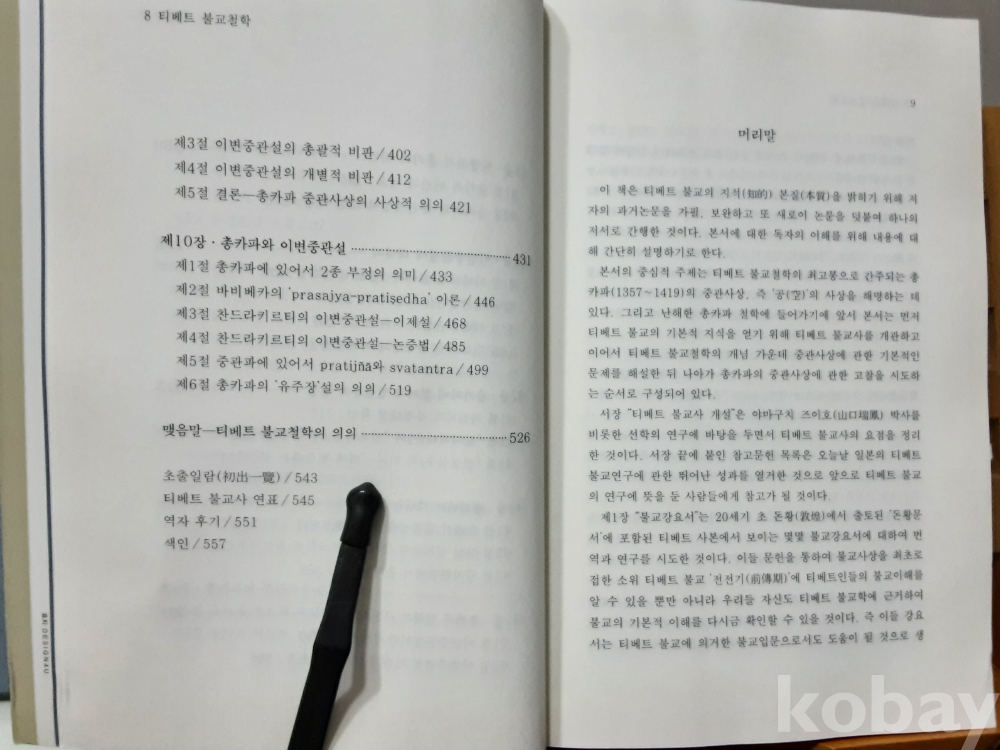 8 티베트 불교철학
제3절 이변중관설의 총괄적 비판/402
제4절 이변중관설의 개별적 비판/412
제5절 결론—총카파 중관사상의 사상적 의의 421
제10장 · 총카파와 이변중관설 ································ 431
제1절 총카파에 있어서 2종 부정의 의미/433
제2절 바비베카의 'prasajya-pratiṣedha' 이론/446
제3절 찬드라키르티의 이변중관설—이제설/468
제4절 찬드라키르티의 이변중관설—논증법/485
제5절 중관파에 있어서 pratijñā와 svatantra/499
제6절 총카파의 '유주장'설의 의의/519
맺음말—티베트 불교철학의 의의 ································ 526
초출일람(初出一覽)/543
티베트 불교사 연표/545
역자 후기/551
색인/557
BN DESIGN4U
9
머리말
이 책은 티베트 불교의 지적(知的) 본질(本質)을 밝히기 위해 저
자의 과거논문을 가필, 보완하고 또 새로이 논문을 덧붙여 하나의
저서로 간행한 것이다. 본서에 대한 독자의 이해를 위해 내용에 대
해 간단히 설명하기로 한다.
본서의 중심적 주제는 티베트 불교철학의 최고봉으로 간주되는 총
카파(1357~1419)의 중관사상, 즉 '공(空)'의 사상을 해명하는 데
있다. 그리고 난해한 총카파 철학에 들어가기에 앞서 본서는 먼저
티베트 불교의 기본적 지식을 얻기 위해 티베트 불교사를 개관하고
이어서 티베트 불교철학의 개념 가운데 중관사상에 관한 기본적인
문제를 해설한 뒤 나아가 총카파의 중관사상에 관한 고찰을 시도하
는 순서로 구성되어 있다.
서장 "티베트 불교사 개설"은 야마구치 즈이호(山口瑞鳳) 박사를
비롯한 선학의 연구에 바탕을 두면서 티베트 불교사의 요점을 정리
한 것이다. 서장 끝에 붙인 참고문헌 목록은 오늘날 일본의 티베트
불교연구에 관한 뛰어난 성과를 열거한 것으로 앞으로 티베트 불교
의 연구에 뜻을 둔 사람들에게 참고가 될 것이다.
제1장 "불교강요서"는 20세기 초 돈황(敦煌)에서 출토된 '돈황문
서'에 포함된 티베트 사본에서 보이는 몇몇 불교강요서에 대하여 번
역과 연구를 시도한 것이다. 이들 문헌을 통하여 불교사상을 최초로
접한 소위 티베트 불교 '전전기(前傳期)'에 티베트인들의 불교이해를
알 수 있을 뿐만 아니라 우리들 자신도 티베트 불교학에 근거하여
불교의 기본적 이해를 다시금 확인할 수 있을 것이다. 즉 이들 강요
서는 티베트 불교에 의거한 불교입문으로서도 도움이 될 것으로 생
kobay